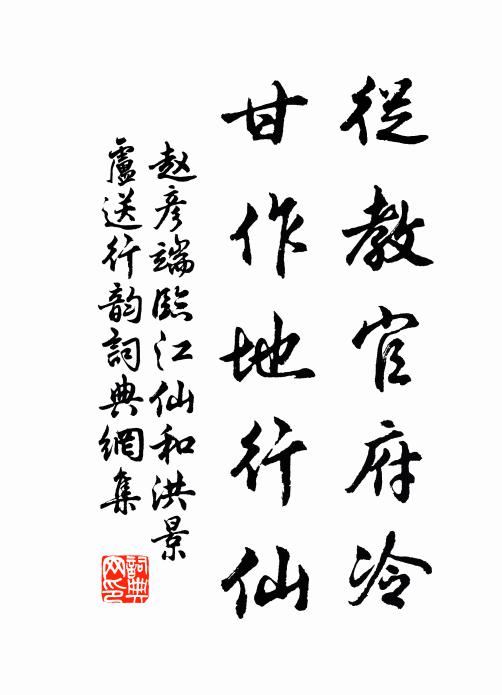 從教官府冷
甘作地行仙
赵彦端臨江仙和洪景
盧送行韵詞典網集
詞典
网印